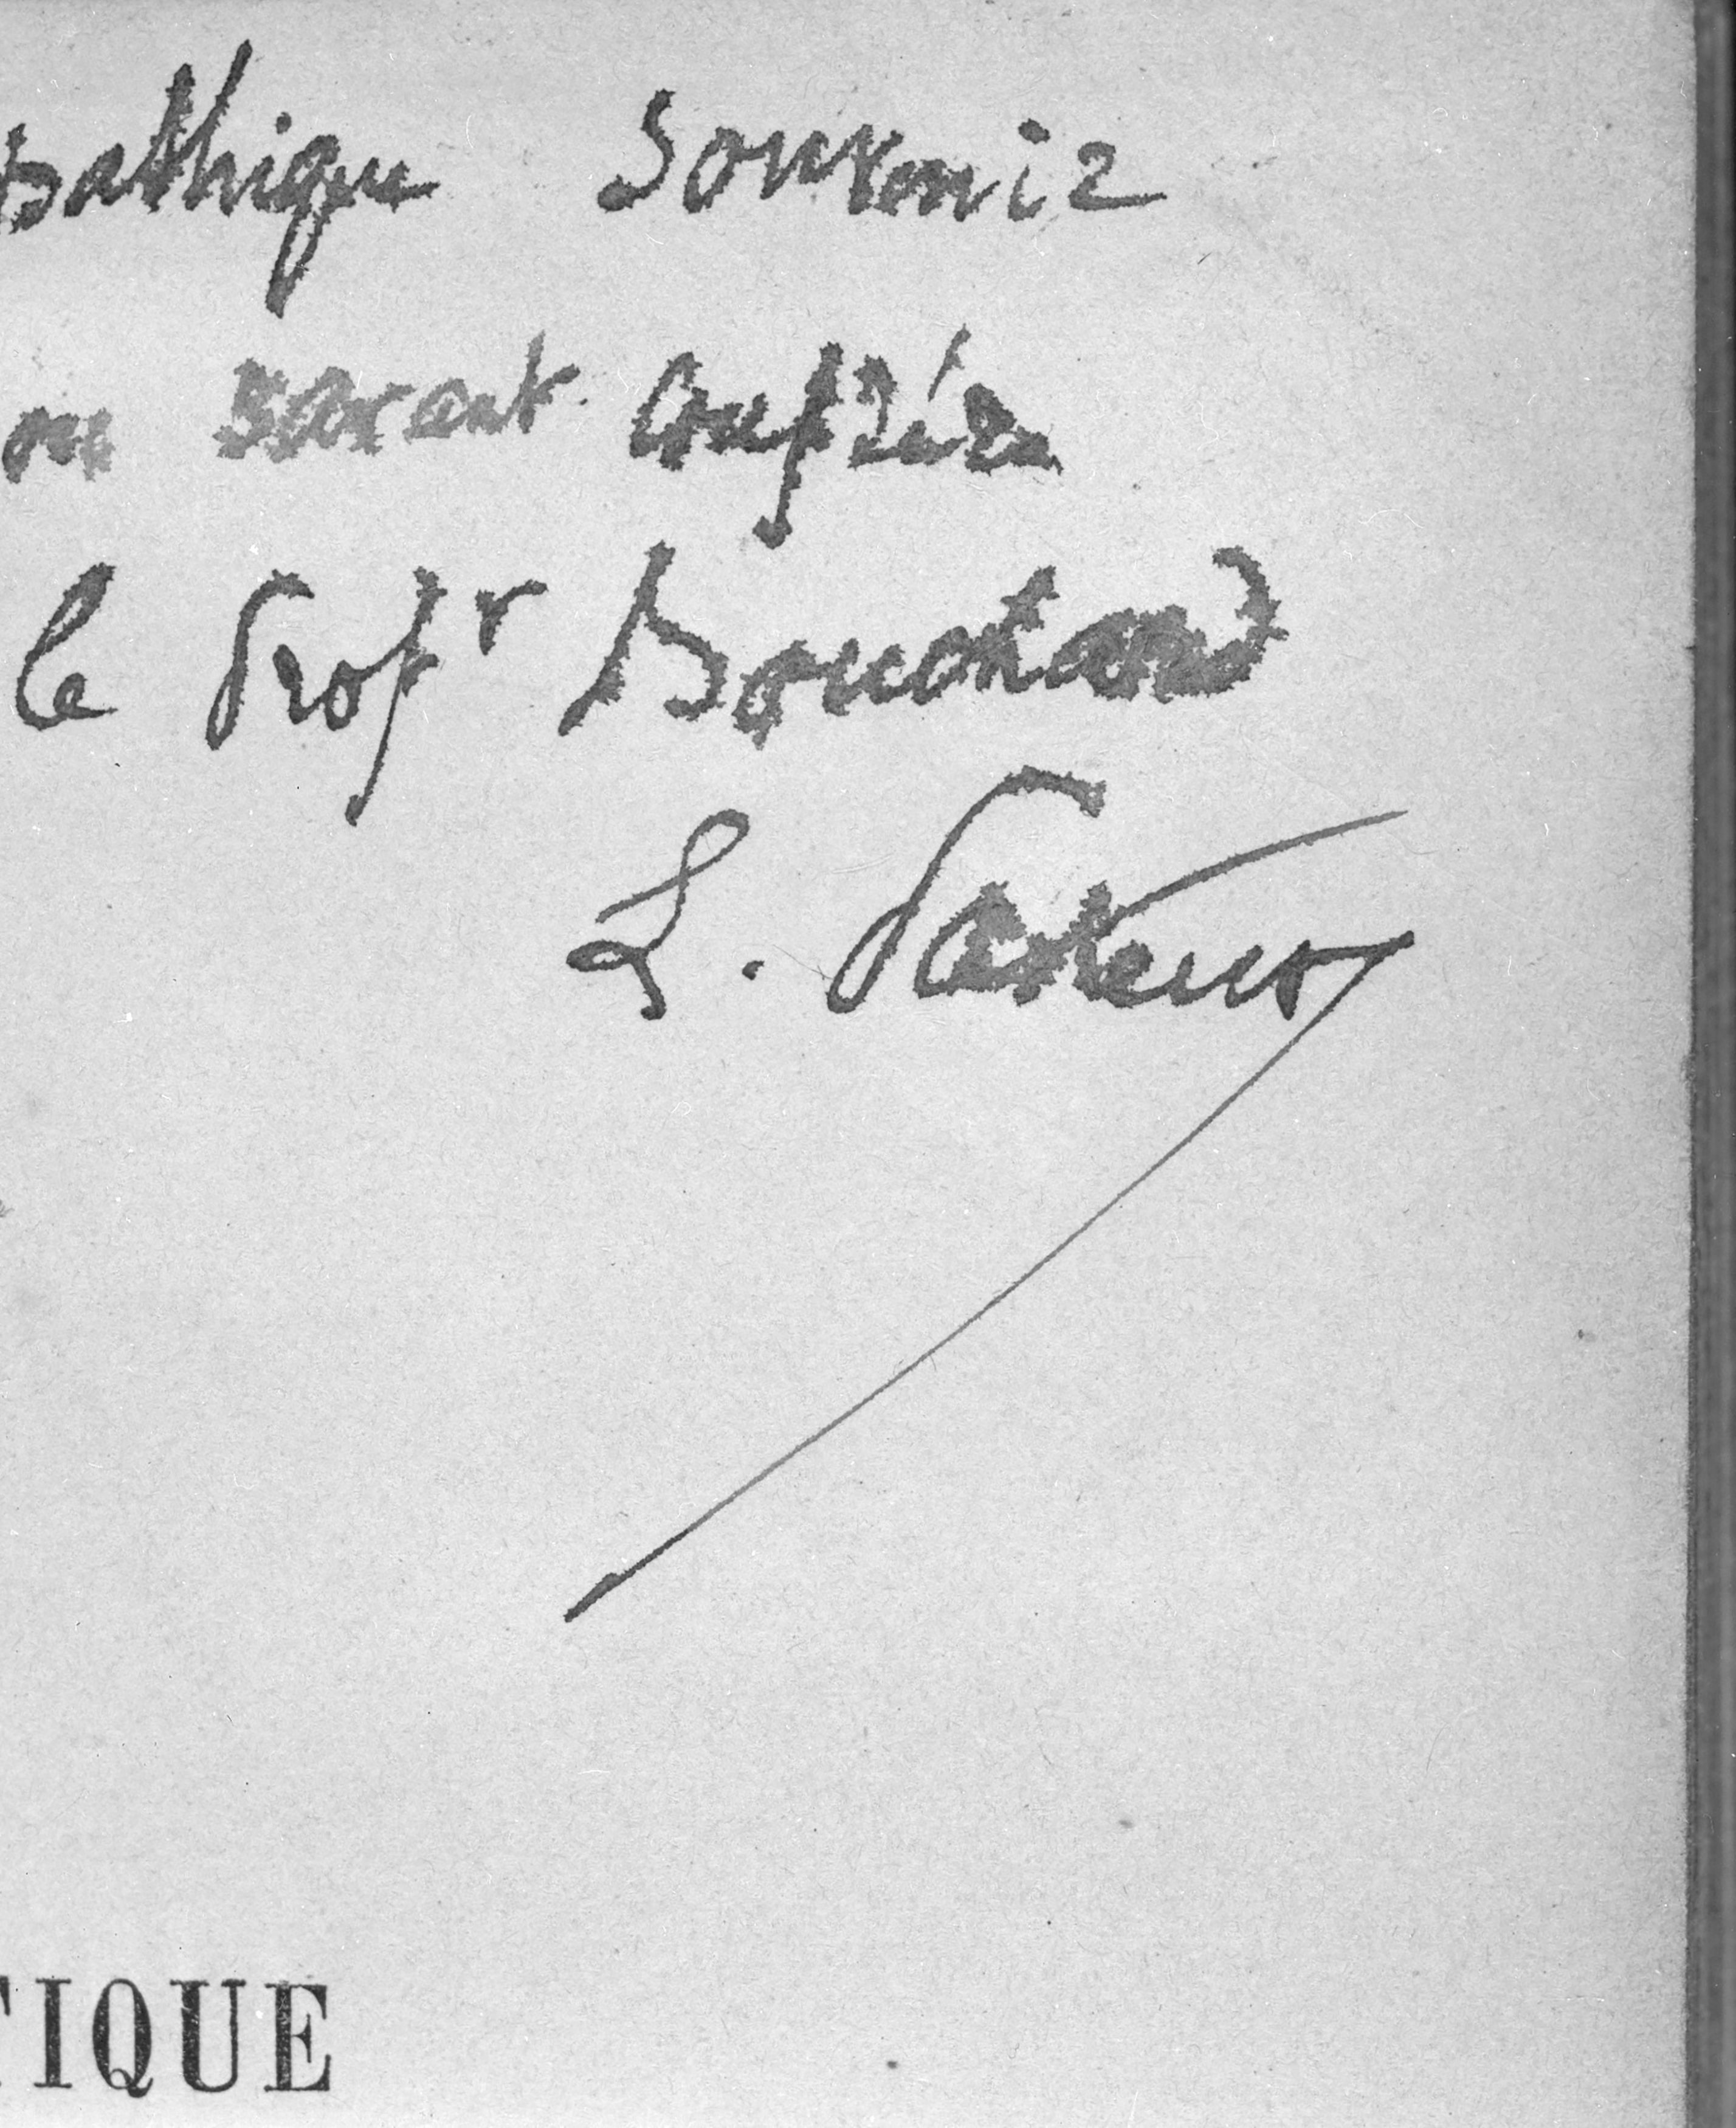 pathique Souvenir
on savant confrère
le Profr Bouchard
L. Pasteur
TIQUE